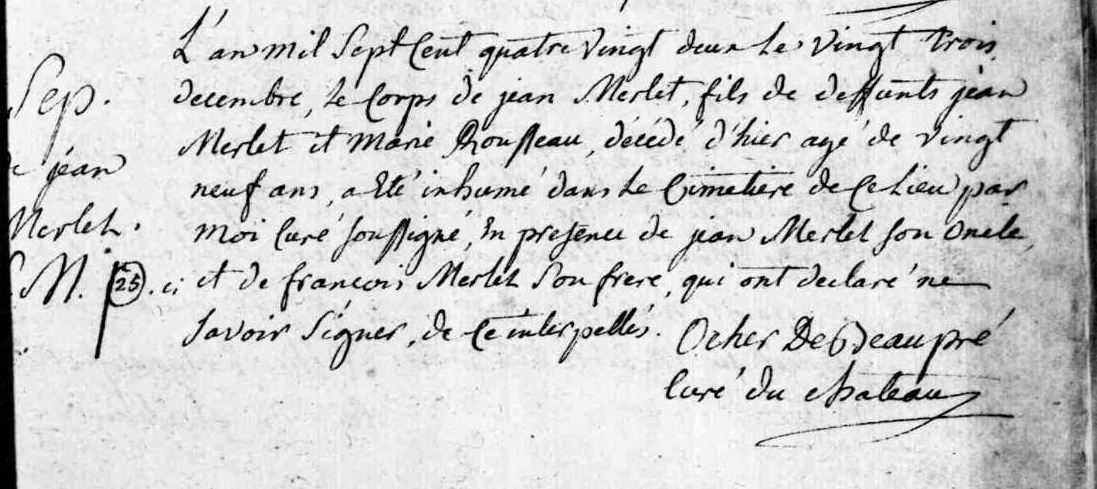 L'an mil Sept Cent quatre Vingt deux Le Vingt Trois
decembre, Le Corps de jean Merlet, fils de deffunts jean
Merlet et Marie Rousseau, décédé d'hier agé de Vingt
neuf ans, a Eté inhumé dans Le Cimetiere de Ce Lieu par
moi Curé soussigné, En presence de jean Merlet son Oncle,
et de francois Merlet Son frere, qui ont declaré ne
Savoir Signer, de Ce interpellés. Ocher De Beaupré
Curé du chateau
Sep.
jean
Merlet.
M. 25.